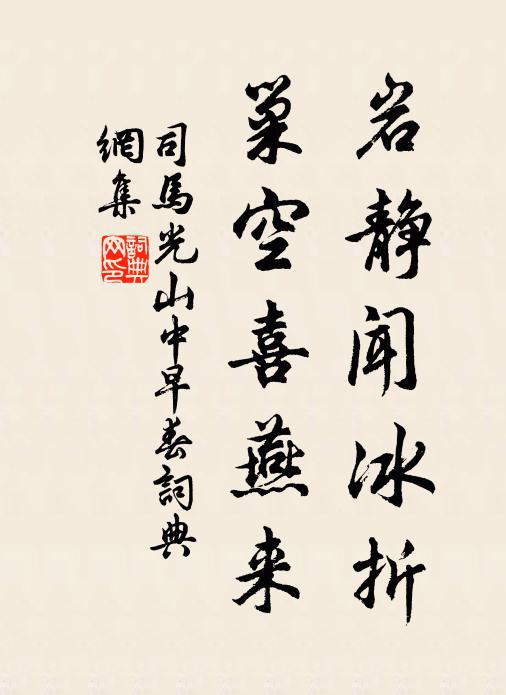 岩静闻冰折
巢空喜燕来
司馬光山中早春詞典
網集
詞典
网印